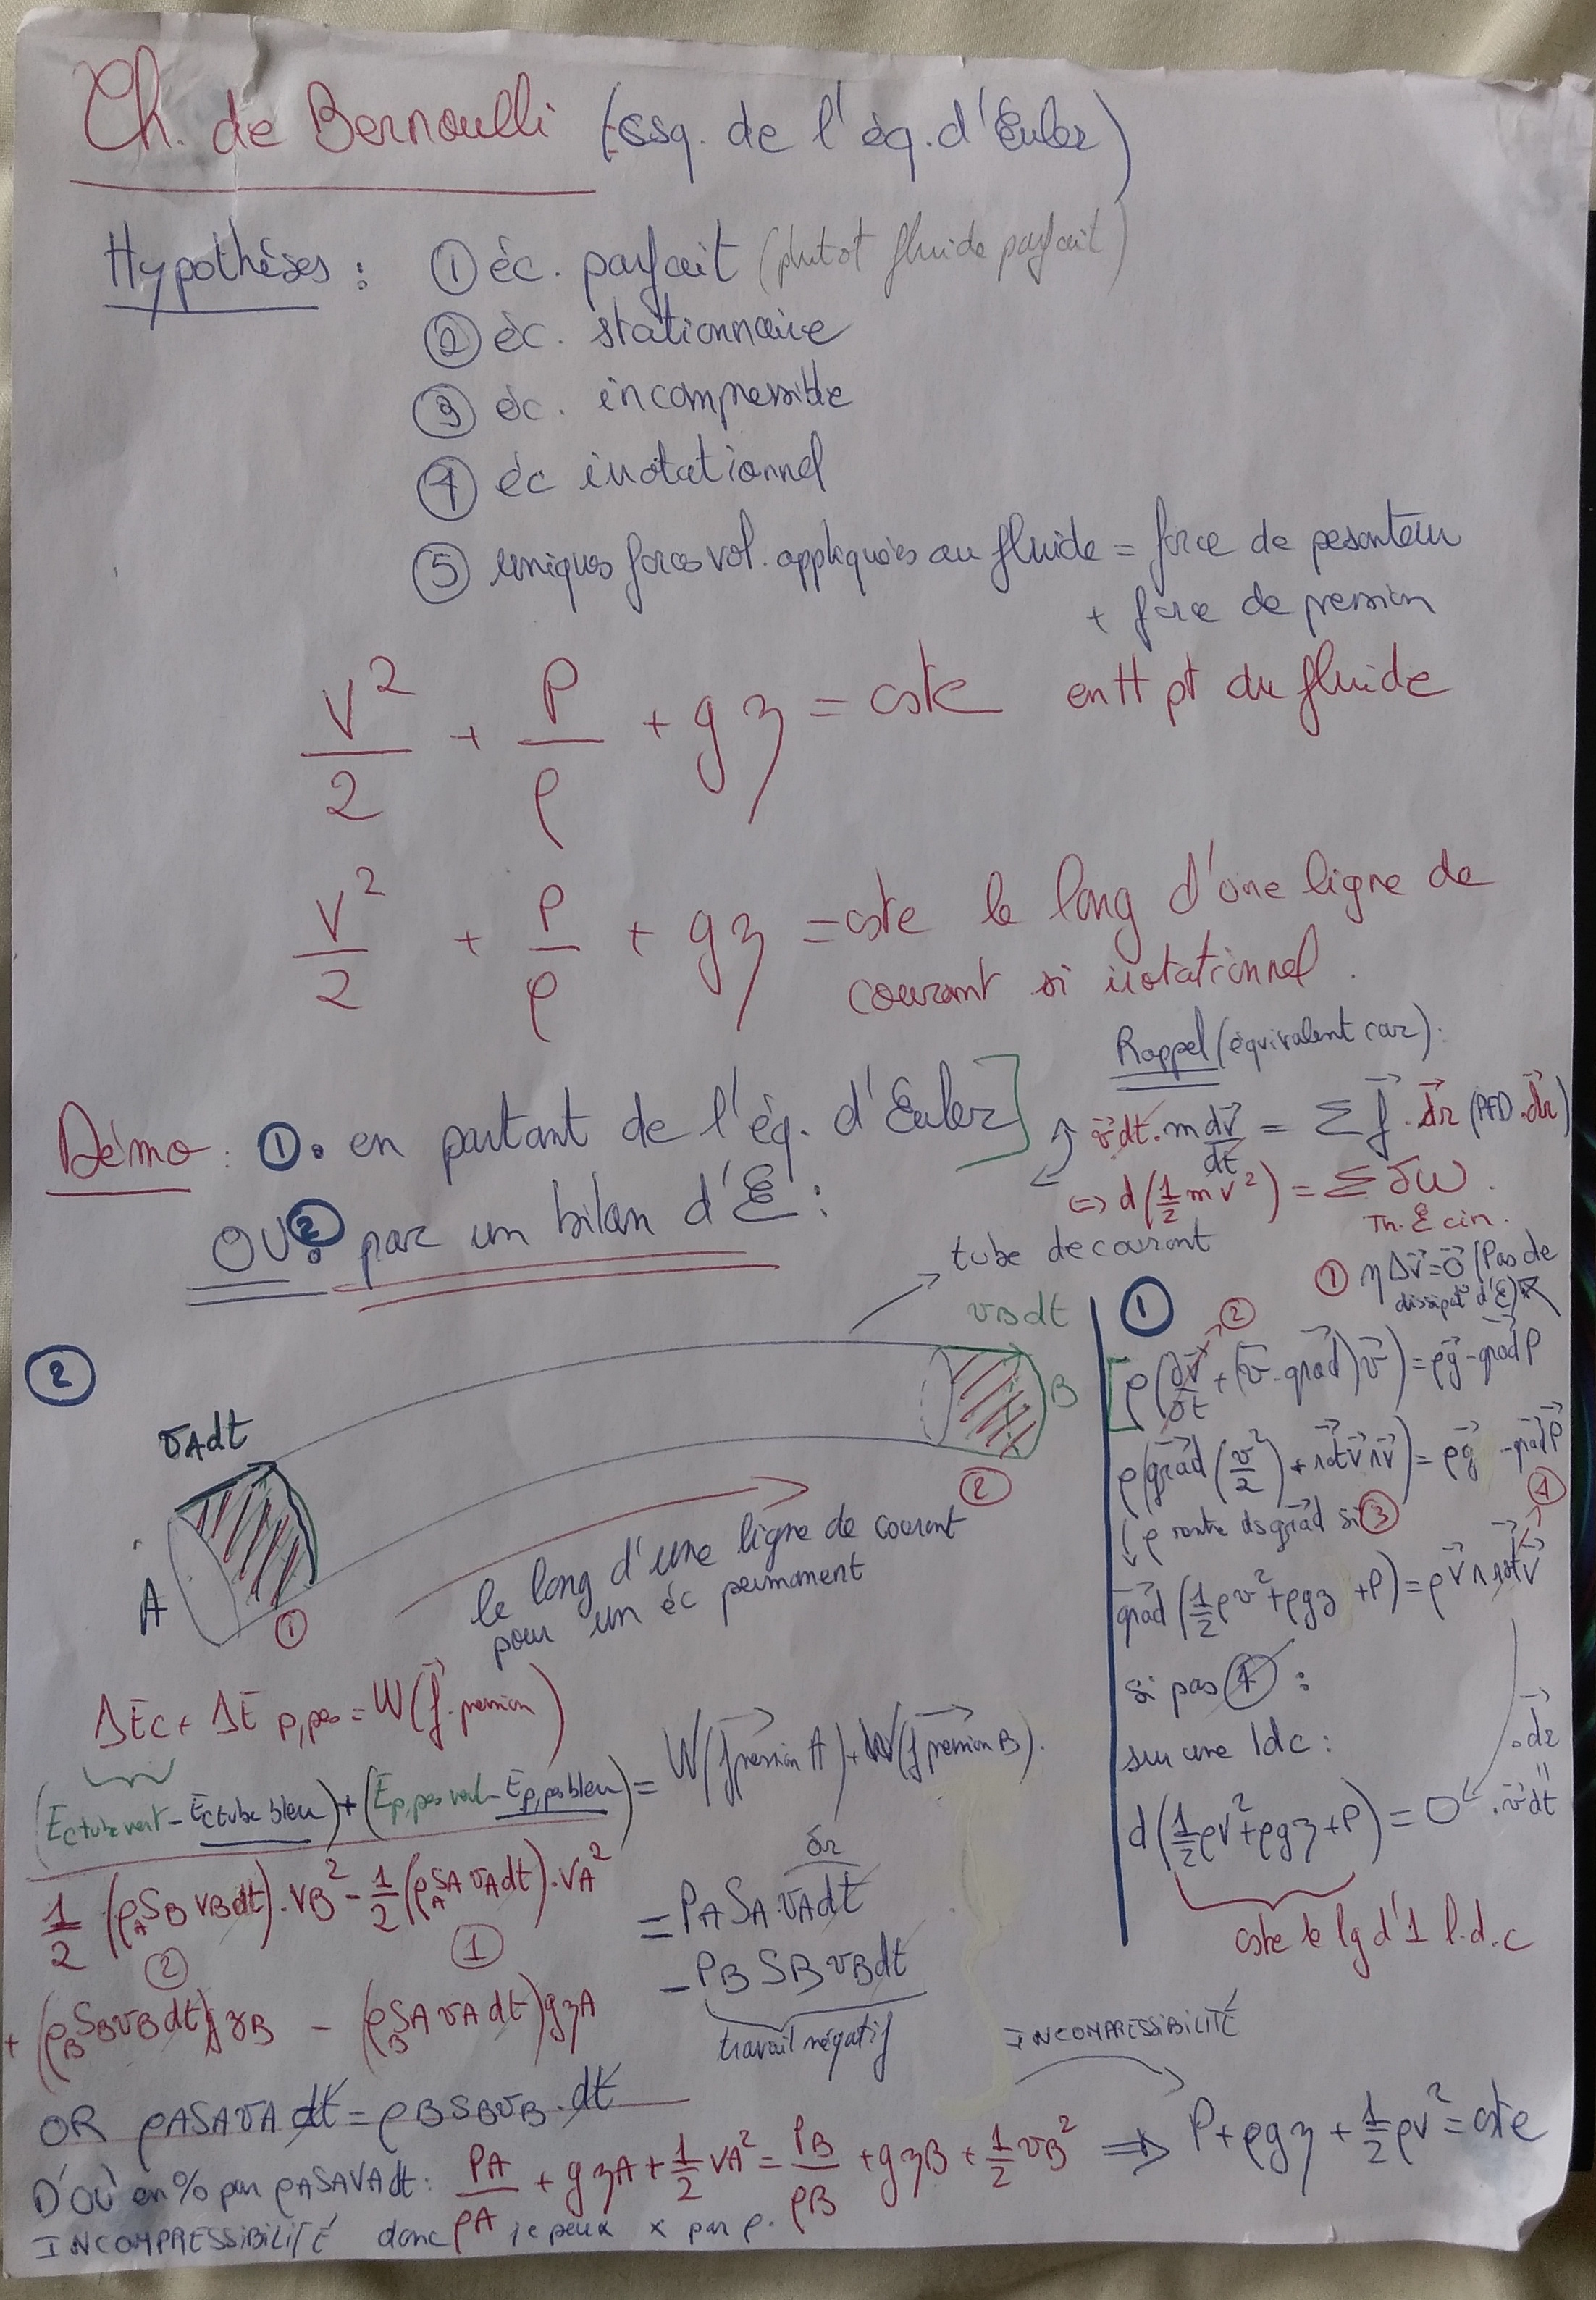 Th. de Bernoulli (csq. de l'éq. d'Euler)
Hypothèses : ① éc. parfait (plutot fluide parfait)
② éc. stationnaire
③ éc. incompressible
④ éc irrotationnel
⑤ uniques forces vol. appliquées au fluide = force de pesanteur
+ force de pression
V²/2 + P/ρ + gz = cste en tt pt du fluide
V²/2 + P/ρ + gz = cste le long d'une ligne de
courant si irotationnel.
Rappel (équivalent car):
Démo : ①• en partant de l'éq. d'Euler]
v⃗dt.m dv⃗/dt = Σ f⃗.dr⃗ (PFD.dr⃗)
<=> d(1/2 mv²) = Σ δW.
Th. E cin.
OU ②• par un bilan d'E :
tube de courant
②
vAdt
vBdt
A
B
①
②
le long d'une ligne de courant
pour un éc permanent
ΔEc + ΔE p,pes = W(f⃗.pression)
(Ec tube vert - Ec tube bleu) + (Ep,pes vert - Ep,pes bleu) = W(f pression A) + W(f pression B).
1/2 (ρA SB VB dt).VB² - 1/2 (ρA SA vA dt).VA²
② ①
+ (ρB SB vB dt)g zB - (ρB SA vA dt)gzA
δr
= PA SA.vAdt
- PB SB vBdt
travail négatif
OR ρA SA vA dt = ρB SB vB.dt
D'OÙ en % par ρA SA VA dt : PA/ρA + gzA + 1/2 VA² = PB/ρB + gzB + 1/2 vB² => P + ρgz + 1/2 ρv² = cste
INCOMPRESSIBILITÉ
INCOMPRESSIBILITÉ donc je peux x par ρ.
①
① ηΔv⃗ = 0⃗ (Pas de
dissipat° d'E)
②
ρ(∂v⃗/∂t + (v⃗.grad)v⃗) = ρg⃗ - grad P
ρ(grad(v²/2) + rot v⃗ ∧ v⃗) = ρg⃗ - grad P
ρ rentre ds grad si ③
④
grad(1/2 ρv² + ρgz + P) = ρ v⃗ ∧ rot v⃗
si pas ④ :
sur une ldc :
.dr⃗
"
.v⃗dt
d(1/2 ρv² + ρgz + P) = 0
cste le lg d'1 l.d.c